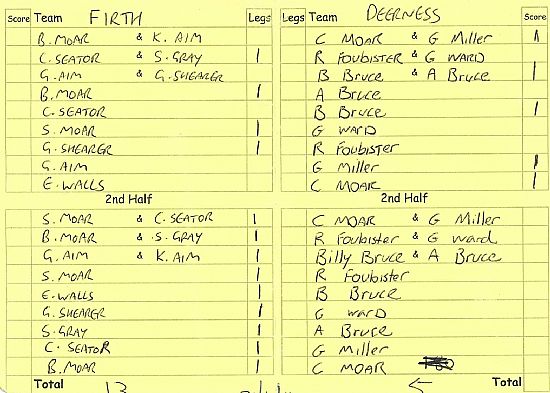 Score Team FIRTH Legs Legs Team DEERNESS Score
B. MOAR & K. AIM C MOAR & G Miller 1
C. SEATOR & S. GRAY 1 R FOUBISTER & G WARD
G. AIM & G. SHEARER B Bruce & A Bruce 1
B. MOAR 1 A Bruce
C. SEATOR B Bruce 1
S. MOAR 1 G WARD
G. SHEARER 1 R FOUBISTER
G. AIM G Miller 1
E. WALLS C MOAR 1
2nd Half 2nd Half
S. MOAR & C. SEATOR 1 C MOAR & G Miller
B. MOAR & S. GRAY 1 R Foubister & G Ward
G. AIM & K. AIM 1 Billy Bruce & A Bruce
S. MOAR 1 R Foubister
E. WALLS 1 B Bruce
G. SHEARER 1 G WARD
S. GRAY 1 A Bruce
C. SEATOR 1 G Miller
B. MOAR 1 C MOAR
Total 13 5 Total